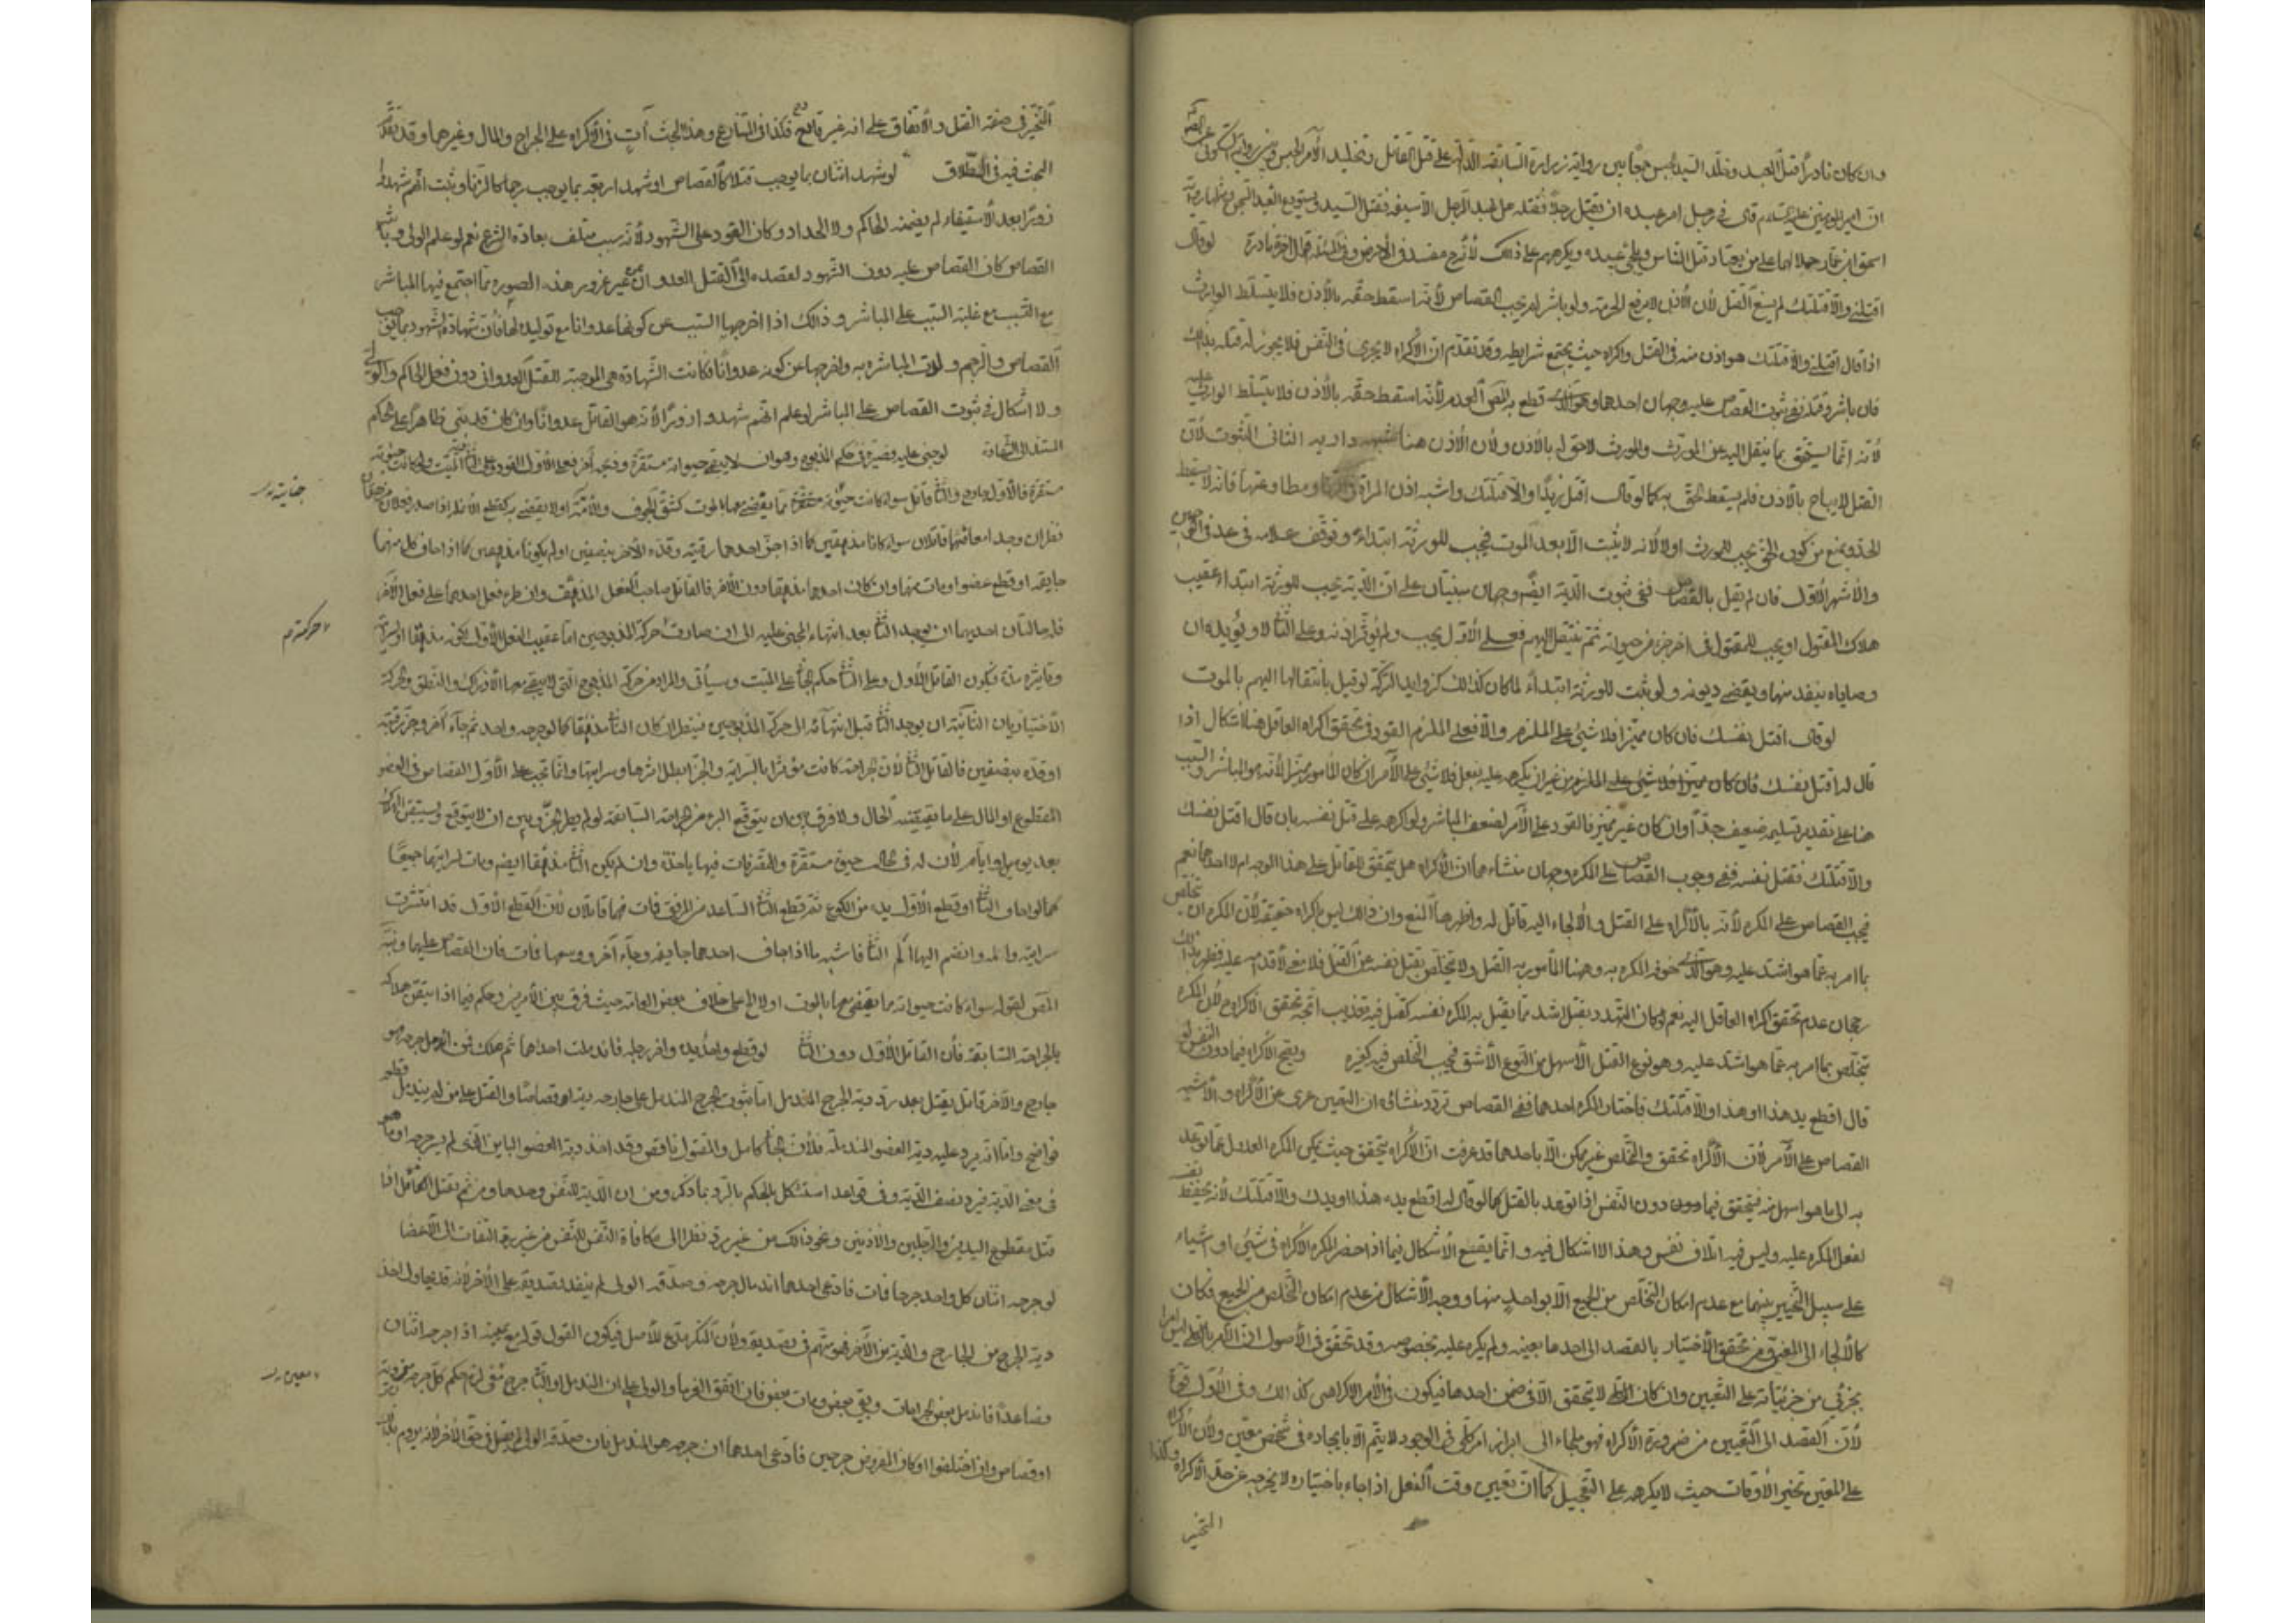 وان كان نادرا قتل العبد وخلد السيد الحبس جمعا بين رواية زرارة السابقة الدالة على قتل القاتل وتخليد الآمر الحبس وبين رواية السكوني عن الصادق
ان امير المؤمنين عليه السلام قال في رجل امر عبده ان يقتل رجلا فقتله هل العبد الرجل الا سيفه فقتل السيد ويستودع العبد السجن ومثلها رواية
اسحق ابن عمار حملا لهما على من يعتاد قتل الناس ويلجئ عبيده ويكرههم على ذلك لأنه ح مفسد في الأرض وفي المسئلة اقوال اخر نادرة لو قال
اقتلني والا قتلتك لم يسغ القتل لأن الأذن لا يرفع الحرمة ولو باشر لم يجب القصاص لأنه اسقط حقه بالأذن فلا يتسلط الوارث
اذا قال اقتلني والا قتلتك هو اذن منه في القتل واكراه حيث يجتمع شرايطه وقد تقدم ان الأكراه لا يجري في النفس فلا يجوز له قتله بذلك
فان باشر وقتله ففي ثبوت القصاص عليه وجهان احدهما وهو الذي قطع به المص العدم لأنه اسقط حقه بالأذن فلا يتسلط الوارث عليه
لأنه انما يستحق بما ينتقل اليه عن المورث والمورث لا حق له بالأذن ولأن الأذن هنا شبهه دارية الثاني الثبوت لأن
القتل لا يباح بالأذن فلم يسقط الحق به كما لو قال اقتل زيدا والا قتلتك واشبه اذن المراة في الزنا ومطاوعتها فانه لا يسقط
الحد ويمنع من كون الحق يجب للمورث اولا لأنه لا يثبت الا بعد الموت فيجب للورثة ابتداء وتوقف علامه في عد في القواعد
والأشهر الأول فان لم نقل بالقصاص ففي ثبوت الدية ايضا وجهان مبنيان على ان الدية تجب للورثة ابتداء عقيب
هلاك المقتول او يجب للمقتول في اخر جزء من حيوته ثم ينتقل اليهم فعلى الأول يجب ولم يؤثر اذنه وعلى الثاني لا ويؤيده ان
وصاياه ينفذ منها ويقضى ديونه ولو ثبت للورثة ابتداء لما كان كذلك كزوايد التركة لو قيل بانتقالها اليهم بالموت
لو قال اقتل نفسك فان كان مميزا فلا شيء على الملزم والا فعلى الملزم القود وفي تحقق اكراه العاقل هنا اشكال اذا
قال له اقتل نفسك فان كان مميزا فلا شيء على الملزم من غير ان يكرهه عليه بفعل فلا شيء على الآمر ان كان المأمور مميزا لأنه هو المباشر والسبب
هنا على تقدير تسليمه ضعيف جدا وان كان غير مميز فالقود على الآمر لضعف المباشر ولو اكرهه على قتل نفسه بان قال اقتل نفسك
والا قتلتك فقتل نفسه ففي وجوب القصاص على المكره وجهان منشاءهما ان الأكراه هل يتحقق للعاقل على هذا الوجه ام لا احدهما نعم
فيجب القصاص على المكره لأنه بالأكراه على القتل والألجاء اليه قاتل له واظهرهما المنع وان ذلك ليس باكراه حقيقة لأن المكره ان يتخلص
بما امر به عما هو اشد عليه وهو الذي خوفه المكره به وهنا المأمور به القتل ولا يتخلص بقتل نفسه عن القتل فلا معنى لأقدامه عليه فظهر بذلك
رجحان عدم تحقق اكراه العاقل اليه نعم لو كان التهدد بقتل اشد مما يقتل به المكره نفسه كقتل فيه تعذيب اتجه تحقق الأكراه ح لأن المكره
يتخلص بما امر به عما هو اشد عليه وهو نوع القتل الأسهل من النوع الأشق فيجب التخلص فيه كغيره ويصح الأكراه فيما دون النفس لو
قال اقطع يد هذا او هذا والا قتلتك فاختار المكره احدهما ففي القصاص تردد منشائه ان التعيين عرى عن الأكراه والأشبه
القصاص على الآمر لأن الأكراه تحقق والتخلص غير ممكن الا باحدهما قد عرفت ان الأكراه يتحقق حيث يمكن المكره العدول عما توعد
به الى ما هو اسهل منه فيتحقق فيما دون النفس اذا توعد بالقتل كما لو قال له اقطع يد هذا او يدك والا قتلتك لأنه يحفظ نفسه
لفعل المكره عليه وليس فيه اتلاف نفس وهذا لا اشكال فيه وانما يقع الأشكال فيما اذا حصر المكره الأكراه في شيئين او اشياء
على سبيل التخيير بينهما مع عدم امكان التخلص من الجميع الا بواحد منها ووجه الأشكال من عدم امكان التخلص من الجميع فكان
كالألجاء الى المعين ومن تحقق الأختيار بالقصد الى احدها بعينه ولم يكره عليه بخصوصه وقد تحقق في الأصول ان الأمر بالكلي ليس امرا
بجزئي من جزئياته على التعيين وان كان الكلي لا يتحقق الا في ضمن احدها فيكون في الأمر الأكراهي كذلك وفي الأول قوة
لأن القصد الى التعيين من ضرورة الأكراه فهو ملجاء الى ابراز امر كلي في الوجود لا يتم الا بايجاده في شخص معين ولأن الأكراه
على المعين تخيير الأوقات حيث لا يكرهه على التعجيل كما ان تعيين وقت الفعل اذا جاء باختياره لا يخرجه عن حد الأكراه وكذا
التخير
التخير في صفة القتل والأتفاق على انه غير قادح فكذا في المتنازع وهذا البحث آت في الأكراه على الجراح والمال وغيرهما وقد تقدم
البحث فيه في الطلاق لو شهد اثنان بما يوجب قتلا كالقصاص او شهد اربعة بما يوجب رجما كالزنا وثبت انهم شهدوا
زورا بعد الأستيفاء لم يضمن الحاكم ولا الحداد وكان القود على الشهود لأنه سبب متلف بعادة الشرع نعم لو علم الولي وباشر
القصاص كان القصاص عليه دون الشهود لقصده الى القتل العدوان من غير غرور هذه الصورة مما اجتمع فيها المباشر
مع السبب مع غلبة السبب على المباشر وذلك اذا اخرجها السبب عن كونها عدوانا مع توليده لها فان شهادة الشهود بما يوجب
القصاص والرجم ولدت المباشرة به واخرجها عن كونه عدوانا فكانت الشهادة هي الموجبة للقتل العدواني دون فعل الحاكم والولي
ولا اشكال في ثبوت القصاص على المباشر لو علم انهم شهدوا زورا لأنه هو القاتل عدوانا وان كان قد بنى ظاهرا على الحكم
المستند الى الشهادة لو جنى عليه فصيره في حكم المذبوح وهو ان لا يبقى حيوته مستقرة وذبحه آخر فعلى الأول القود وعلى الثاني دية الميت ولو كانت حيوته
مستقرة فالأول جارح والثاني قاتل سواء كانت حيوته مستقرة مما يقضى معها بالموت كشق الجوف والآمة او لا يقضى به كقطع الأنملة اذا صدر فعلان من جان
نظر ان وجدا معا فهما قاتلان سواء كانا مذففين كما اذا جز احدهما رقبته وقده الآخر بنصفين او لم يكونا مذففين كما اذا اجاف كل منهما
جايفة او قطع عضوا ومات منهما وان كان احدهما مذففا دون الآخر فالقاتل صاحب الفعل المذفف وان طرء فعل احدهما على فعل الآخر
فله حالتان احديهما ان يوجد الثاني بعد انتهاء المجني عليه الى ان صارت حركة المذبوحين اما عقيب الفعل الأول لكونه مذففا او لسرايته
وتاثيره مدة فيكون القاتل الأول وعلى الثاني حكم الجناية على الميت وسيأتي والمراد من حركة المذبوح التي لا يبقى معها الأدراك والنطق والحركة
الأختياريان الثانية ان يوجد الثاني قبل انتهائه الى حركة المذبوحين فينظر ان كان الثاني مذففا كما لو جرحه واحد ثم جاء آخر وجز رقبته
او قده بنصفين فالقاتل الثاني لأن الجراحة كانت مؤثرا بالسراية والجز ابطل اثرها وسرايتها وانما تجب على الأول القصاص في العضو
المقطوع او المال على ما يقتضيه الحال ولا فرق بين ان يتوقع البرء من الجراحة السابقة لو لم يطر الجز وبين ان لا يتوقع ويستيقن الهلاك
بعد يوم او ايام لأن له في الحال حيوة مستقرة والتصرفات فيها ياخذة وان لم يكن الثاني مذففا ايضا ومات لسرايتهما جميعا
كما لو اجاف الثاني او قطع الأول يده من الكوع ثم قطع الثاني الساعد من المرفق فمات فهما قاتلان لأن القطع الأول قد انتشرت
سرايته والمه وانضم اليها الم الثاني فاشبه ما اذا اجاف احدهما جايفة وجاء آخر ووسعها فمات فان القصاص عليهما ونبه
المص لقوله سواء كانت حيوته مما يقضى معها بالموت او لا الى على خلاف بعض العامة حيث فرق بين الأمرين وحكم فيما اذا تيقن هلاكه
بالجراحة السابقة فان القاتل الأول دون الثاني لو قطع واحد يده واخر رجله فاندملت احداهما ثم هلك فمن اندمل جرحه فهو
جارح والآخر قاتل يقتل بعد رد دية الجرح المندمل اما ثبوت الجرح المندمل على جارحه دية او قصاصا والقتل على من لم يندمل قطعه
فواضح واما انه يرد عليه دية العضو المندملة فلأن الجاني كامل والمقتول ناقص وقد اخذ دية العضو الباين الذي لم يسر جرحه او ما هو
في معنى الدية فيرد نصف الدية وفي قواعد استشكل الحكم بالرد بما ذكر ومن ان الدية للنفس وحدها ومن ثم يقتل الكامل اذا
قتل مقطوع اليدين والرجلين والأذنين ونحو ذلك من غير رد نظرا الى مكافاة النفس للنفس من غير التفات الى الأعضا
لو جرحه اثنان كل واحد جرحا فمات فادعى احدهما اندمال جرحه وصدقه الولي لم ينفذ تصديقه على الآخر لأنه قد يحاول اخذ
دية الجرح من الجارح والدية من الآخر فهو متهم في تصديقه ولأن المنكر مدع للأصل فيكون القول قوله مع يمينه اذا جرحه اثنان
فصاعدا فاندمل بعض الجراحات وبقي بعض ومات بعض فان اتفق الغرماء والولي على ان المندمل اي الثاني جرح متى لزم حكم كل جرح من دية
او قصاص وان اختلفوا او كان المفروض جرحين فادعى احدهما ان جرحه هو المندمل فان صدقه الولي لم يقبل في حق الآخر لأنه يروم بذلك
جنايته
حركته